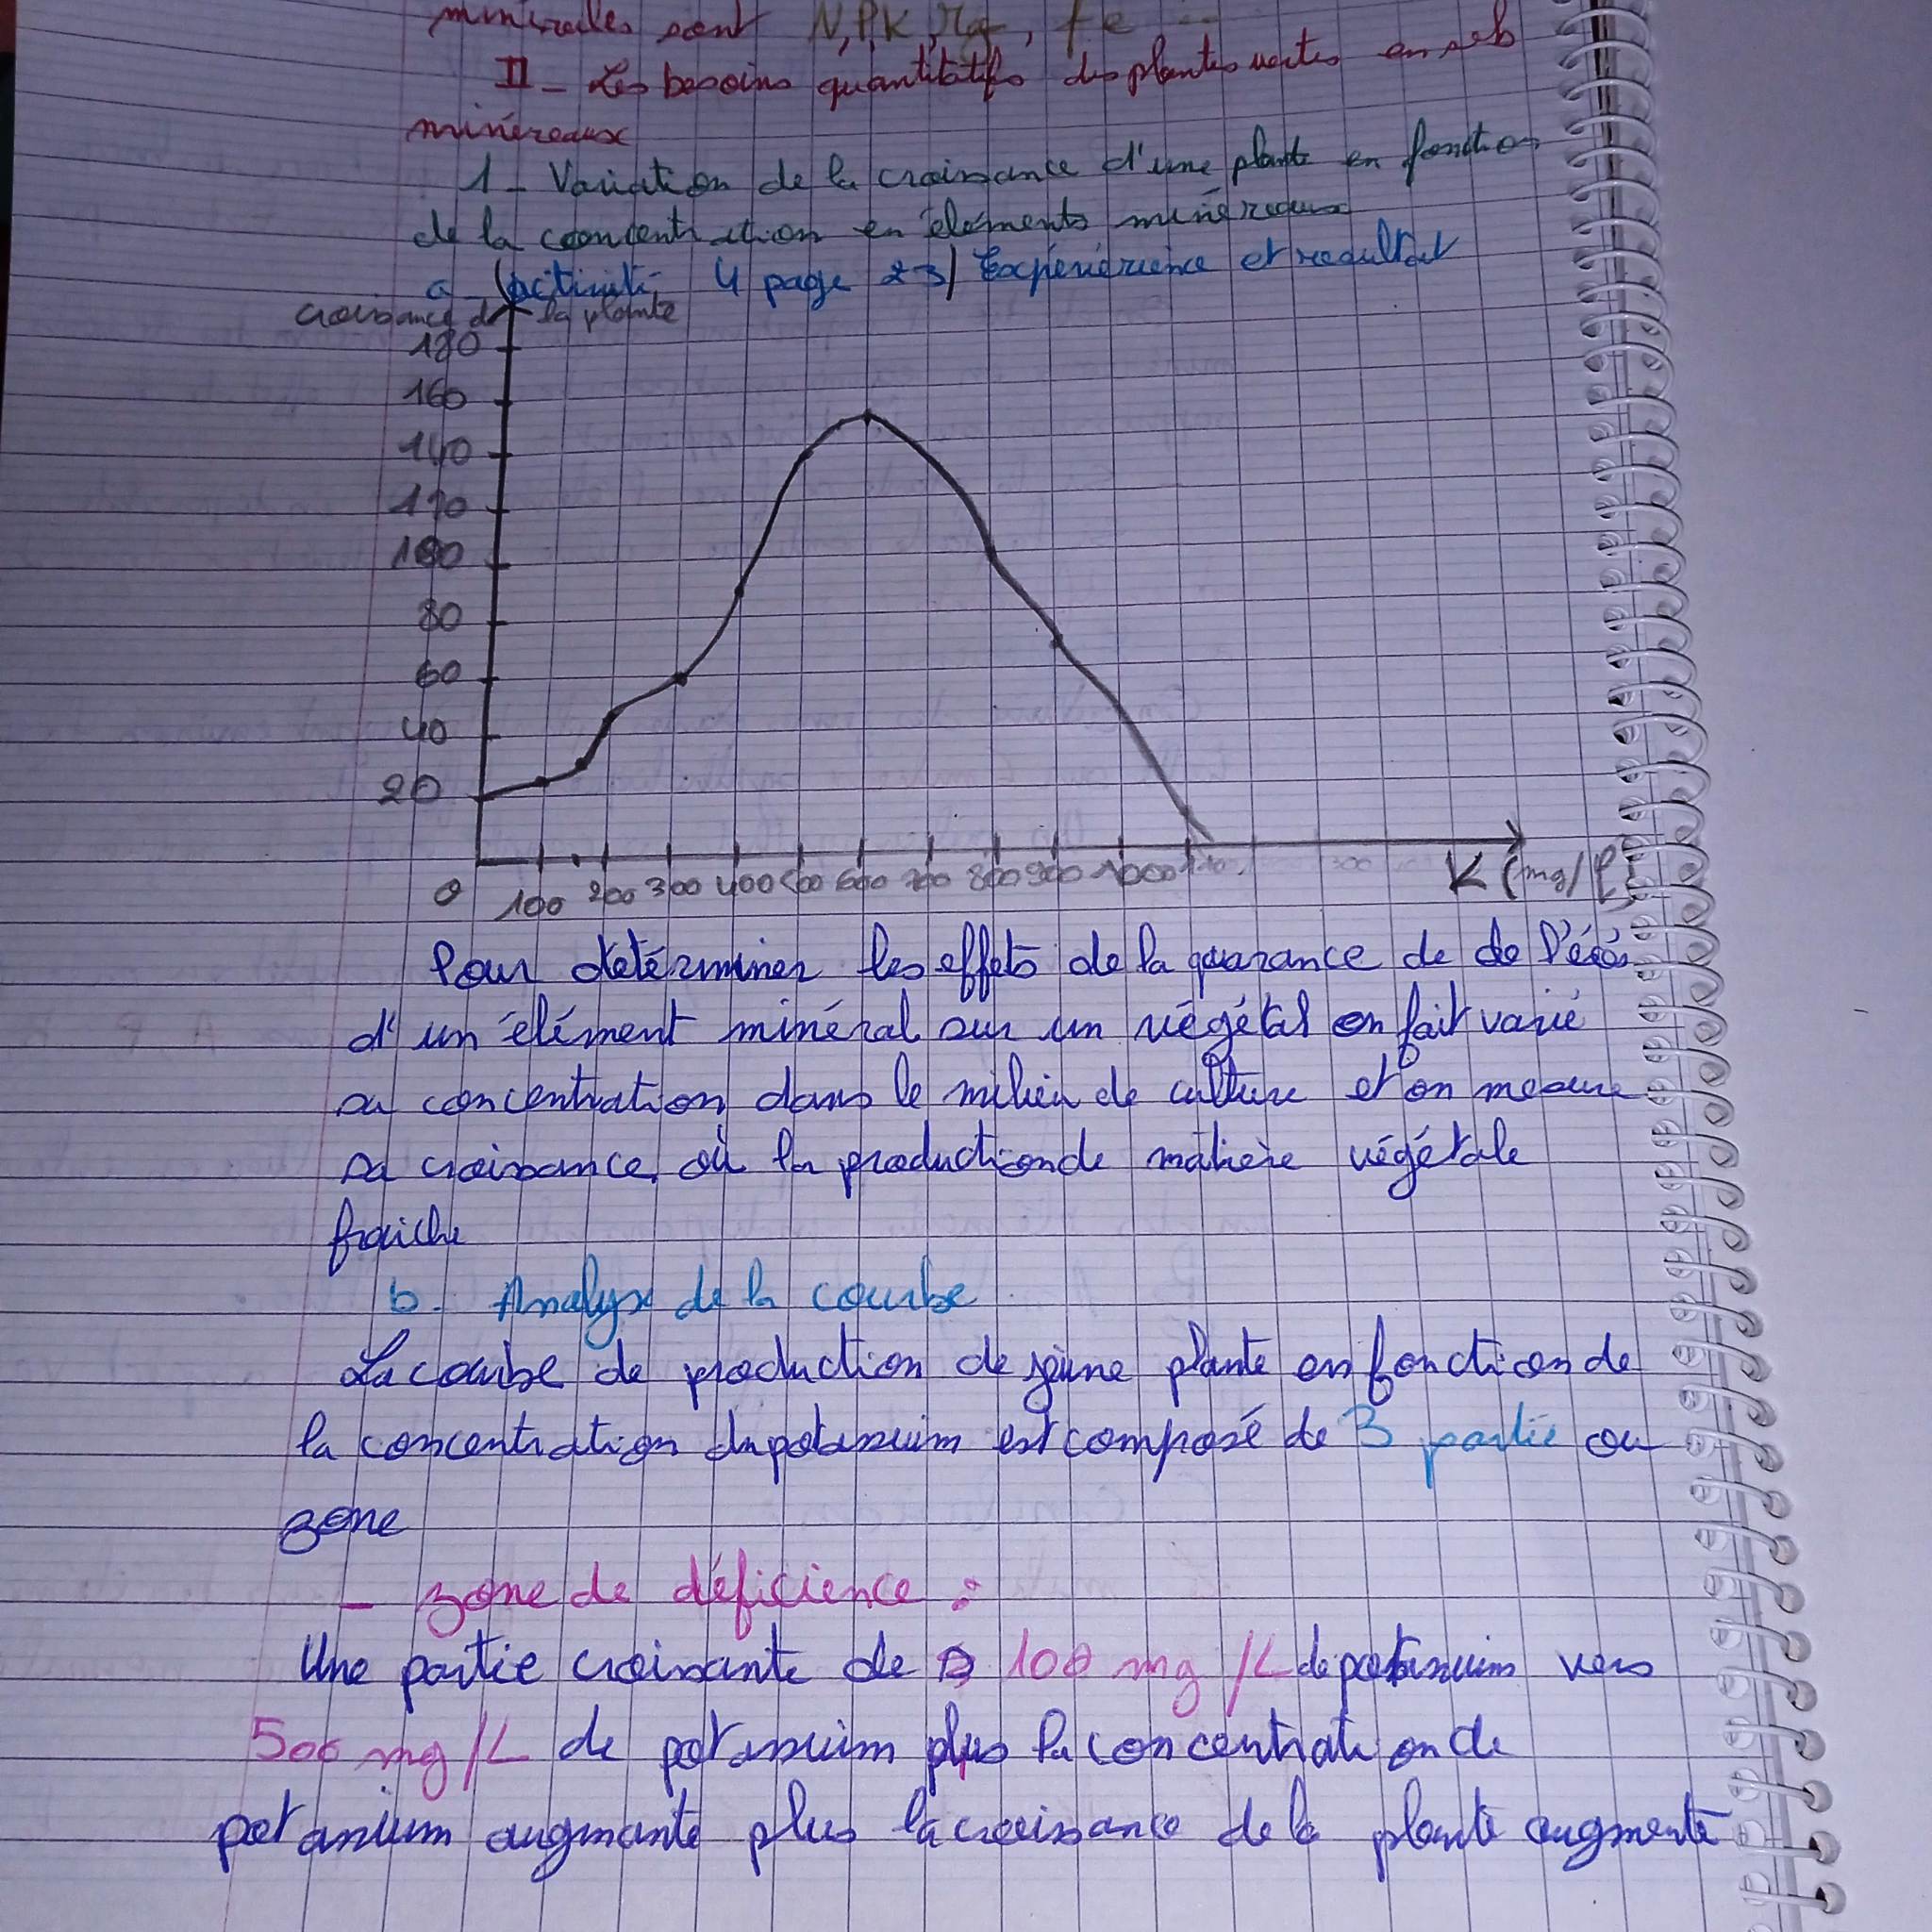 minérales sont N, P, K, Mg, fe --
II - Les besoins quantitatifs des plantes vertes en sels
minéreaux
1 - Variation de la croissance d'une plante en fonction
de la concentration en éléments minéreaux
a - (activité 4 page 23) Expériérience et resultat
croissance de la plante
180
160
140
120
100
80
60
40
20
0 100 200 300 400 500 600 700 800 900 1000 1100
K (mg/l)
Pour détérminer les effets de la quarance de de
d'un élément minéral sur un végétal on fait varié
sa concentration dans le milieu de culture et on mesure
sa croissance, où la production de matière végétale
fraiche
b - Analyse de la courbe
La courbe de production de jeune plante en fonction de
la concentration du potassium est composé de 3 partie ou
zone
- zone de déficience :
Une partie croissante de 100 mg/L de potassium vers
500 mg/L de potassium plus la concentration de
potassium augmante plus la croissance de la plante augmente